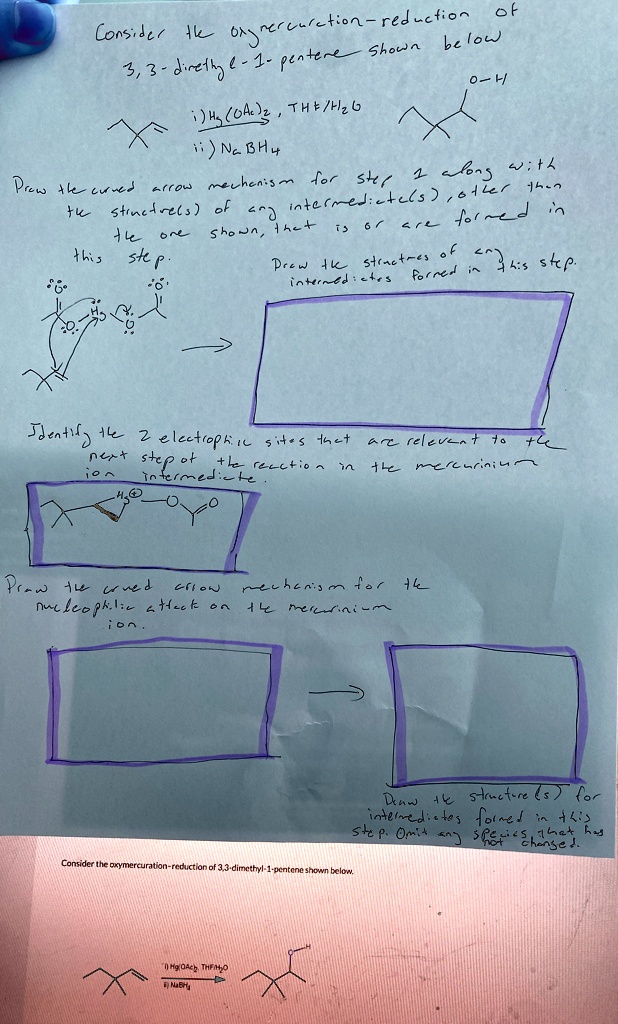 Consider the oxymercuration-reduction of
3,3-dimethyl-1-pentene shown below
O-H
i) Hg(OAc)2, THF/H2O
ii) NaBH4
Draw the curved arrow mechanism for step 1 along with
the structure(s) of any intermediate(s), other than
the one shown, that is or are formed in
this step.
Draw the structures of any
intermediates formed in this step.
O
O
O
Hg
O
Identify the 2 electrophilic sites that are relevant to the
next step of the reaction in the mercurinium
ion intermediate.
Hg⊕-O
O
Draw the curved arrow mechanism for the
nucleophilic attack on the mercurinium
ion.
Draw the structure(s) for
intermediates formed in this
step. Omit any species that has
not changed.
Consider the oxymercuration-reduction of 3,3-dimethyl-1-pentene shown below.
O-H
i) Hg(OAc)2, THF/H2O
ii) NaBH4